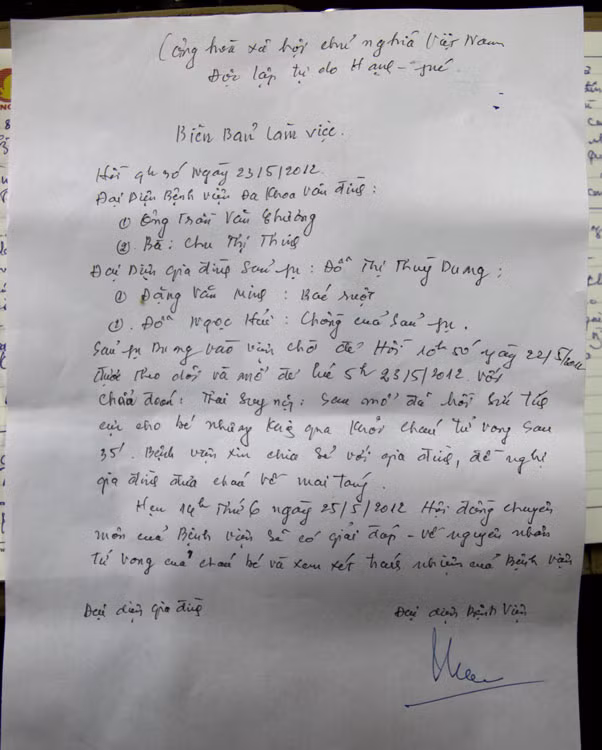 Cộng hoà xã hội chủ nghĩa Việt Nam
Độc lập tự do Hạnh - phúc
Biên Bản làm việc.
Hồi 9h 50 ngày 23/5/2012.
Đại Diện Bệnh viện Đa khoa Vân đình:
① Ông Trần Văn Chường
②. Bà: Chu Thị Thinh
Đại Diện gia đình sản fụ: Đỗ Thị Thuỳ Dung;
① Đặng Văn Minh: Bác ruột
②. Đỗ Ngọc Huế: Chồng của sản fụ.
Sản fụ Dung vào viện chờ đẻ Hồi 10h 50' ngày 22/5/2012
được theo dõi và mổ đẻ lúc 5h 23/5/2012. Với
chẩn đoán: Thai suy; sau mổ đã hồi sức tích
cực cho bé nhưng không qua khỏi cháu tử vong sau
35'. Bệnh viện xin chia sẻ với gia đình, đề nghị
gia đình đưa cháu về mai táng.
Hẹn 14h thứ 6 ngày 25/5/2012 Hội đồng chuyên
môn của Bệnh viện sẽ có giải đáp - về nguyên nhân
tử vong của cháu bé và xem xét trách nhiệm của Bệnh viện
Đại diện gia đình
Đại diện Bệnh Viện